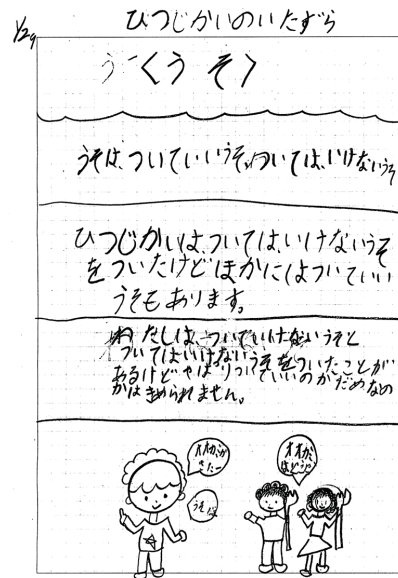 ひつじかいのいたずら
1/29
〈うそ〉
うそは、ついていいうそ、ついては、いけないうそ
ひつじかいは、ついては、いけないうそ
をついたけどほかにはついていい
うそもあります。
わたしは、ついていけないうそと
ついてはいけないうそをついたことが
あるけどやはりついていいのかだめなの
かはきめられません。
オオカミが
きたー
うそだよ
オオカミ
はどこ?